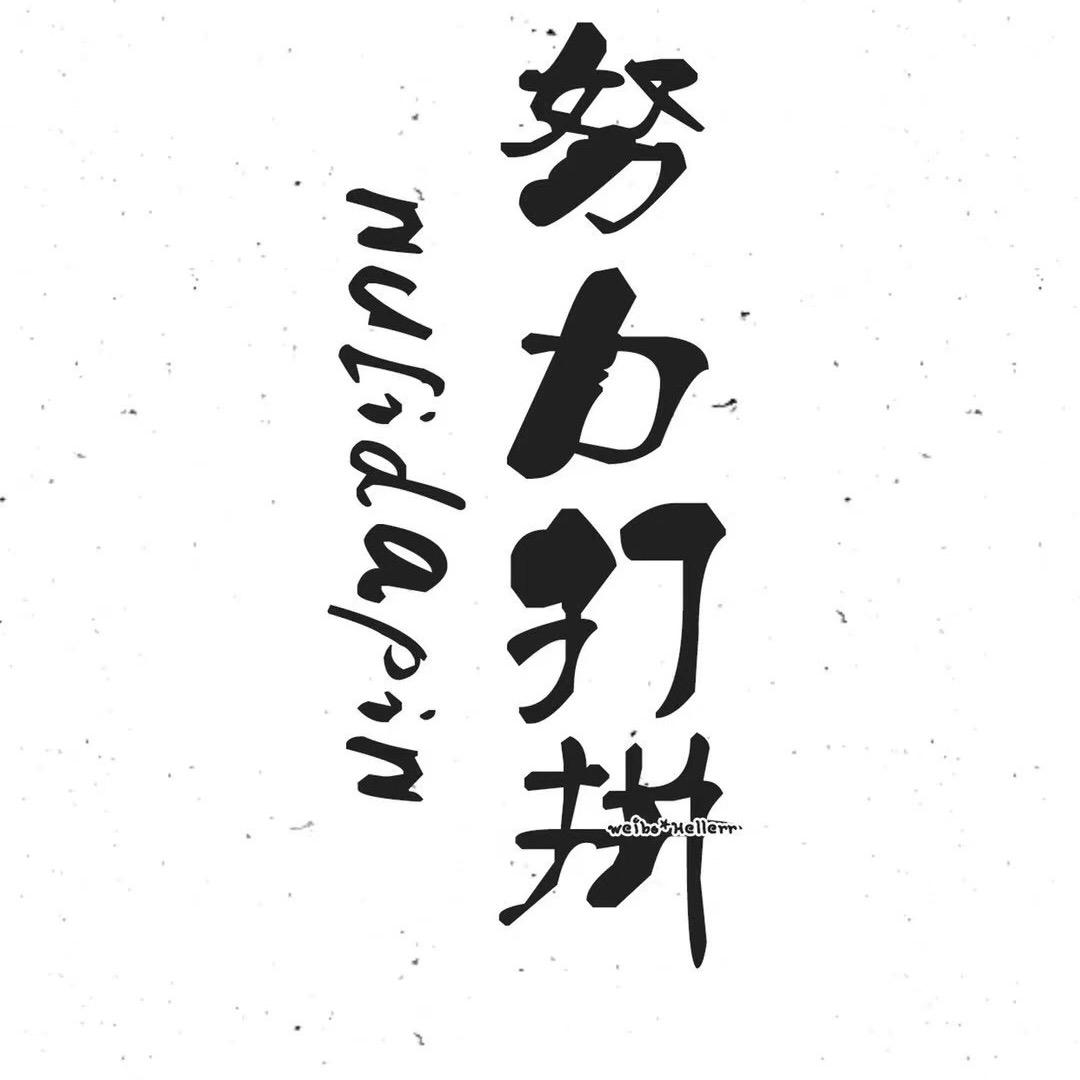 努力打拼
nulidapin
weibo*Hellerr